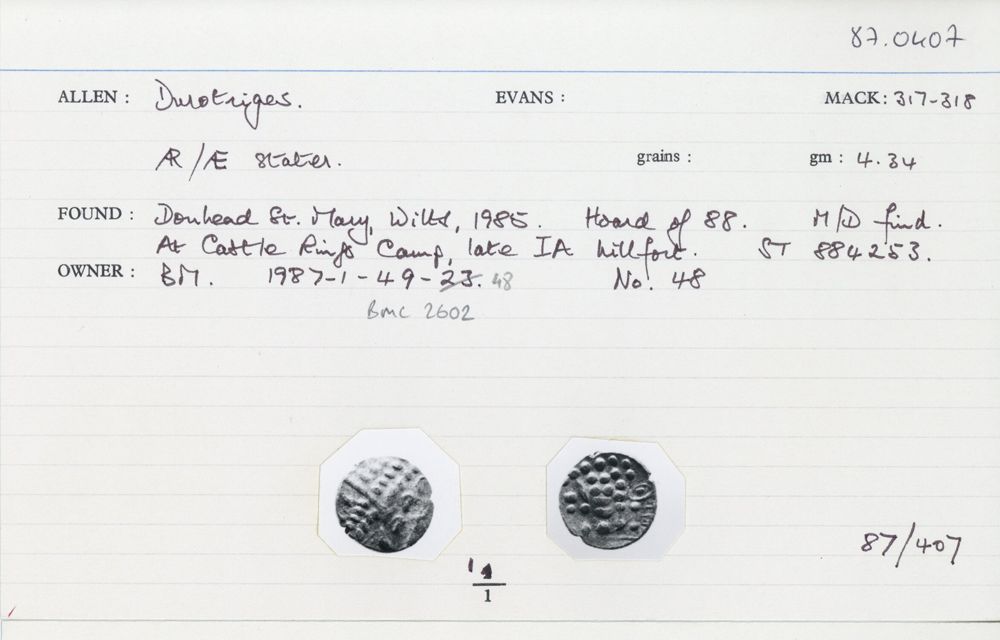 87.0407
ALLEN : Durotriges. EVANS : MACK: 317-318
ÆR/Æ stater. grains : gm : 4.34
FOUND : Donhead St. Mary, Wilts, 1985. Hoard of 88. M/D find.
At Castle Rings Camp, late IA hillfort. ST 884253.
OWNER : BM. 1987-1-49-23. 48 No. 48
BMC 2602
87/407
1
1